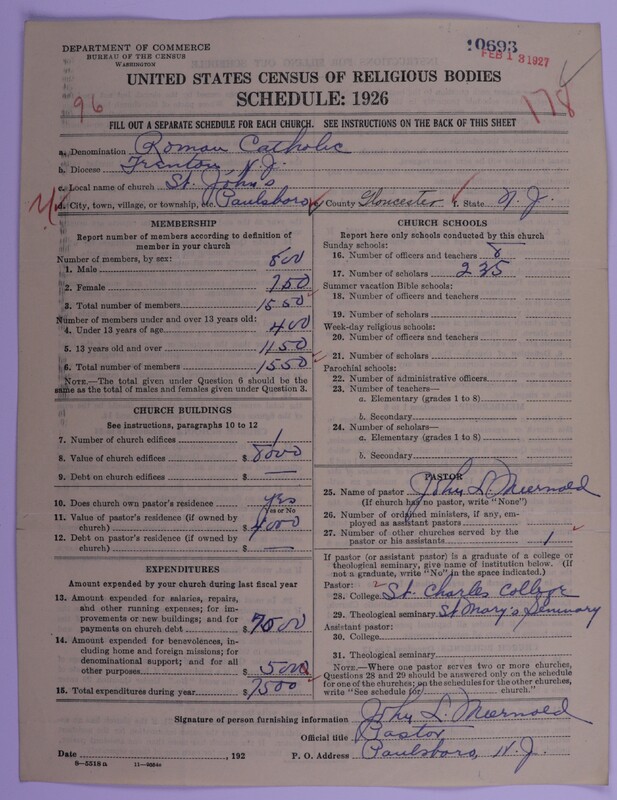 DEPARTMENT OF COMMERCE
BUREAU OF THE CENSUS
WASHINGTON
20693
FEB 13 1927
UNITED STATES CENSUS OF RELIGIOUS BODIES
SCHEDULE: 1926
96
178
FILL OUT A SEPARATE SCHEDULE FOR EACH CHURCH. SEE INSTRUCTIONS ON THE BACK OF THIS SHEET
a. Denomination Roman Catholic
b. Diocese Trenton, N.J.
c. Local name of church St. John's
d. City, town, village, or township, etc. Paulsboro e. County Gloucester f. State N.J.
MEMBERSHIP
Report number of members according to definition of
member in your church
Number of members, by sex:
1. Male 800
2. Female 750
3. Total number of members 1550
Number of members under and over 13 years old:
4. Under 13 years of age 400
5. 13 years old and over 1150
6. Total number of members 1550
NOTE.—The total given under Question 6 should be the
same as the total of males and females given under Question 3.
CHURCH BUILDINGS
See instructions, paragraphs 10 to 12
7. Number of church edifices 1
8. Value of church edifices $ 8000
9. Debt on church edifices $ —
10. Does church own pastor's residence yes
Yes or No
11. Value of pastor's residence (if owned by
church) $ 4000
12. Debt on pastor's residence (if owned by
church) $ —
EXPENDITURES
Amount expended by your church during last fiscal year
13. Amount expended for salaries, repairs,
and other running expenses; for im-
provements or new buildings; and for
payments on church debt $ 7000
14. Amount expended for benevolences, in-
cluding home and foreign missions; for
denominational support; and for all
other purposes $ 500
15. Total expenditures during year $ 7500
CHURCH SCHOOLS
Report here only schools conducted by this church
Sunday schools:
16. Number of officers and teachers 8
17. Number of scholars 235
Summer vacation Bible schools:
18. Number of officers and teachers
19. Number of scholars
Week-day religious schools:
20. Number of officers and teachers
21. Number of scholars
Parochial schools:
22. Number of administrative officers
23. Number of teachers—
a. Elementary (grades 1 to 8)
b. Secondary
24. Number of scholars—
a. Elementary (grades 1 to 8)
b. Secondary
PASTOR
25. Name of pastor John L.
(If church has no pastor, write "None")
26. Number of ordained ministers, if any, em-
ployed as assistant pastors
27. Number of other churches served by the
pastor or his assistants 1
If pastor (or assistant pastor) is a graduate of a college or
theological seminary, give name of institution below. (If
not a graduate, write "No" in the space indicated.)
Pastor:
28. College St. Charles College
29. Theological seminary St Mary's Seminary
Assistant pastor:
30. College
31. Theological seminary
NOTE.—Where one pastor serves two or more churches,
Questions 28 and 29 should be answered only on the schedule
for one of the churches; on the schedules for the other churches,
write "See schedule for church."
Signature of person furnishing information John L.
Official title Pastor
Date , 192 P. O. Address Paulsboro, N.J.
8-5518 a